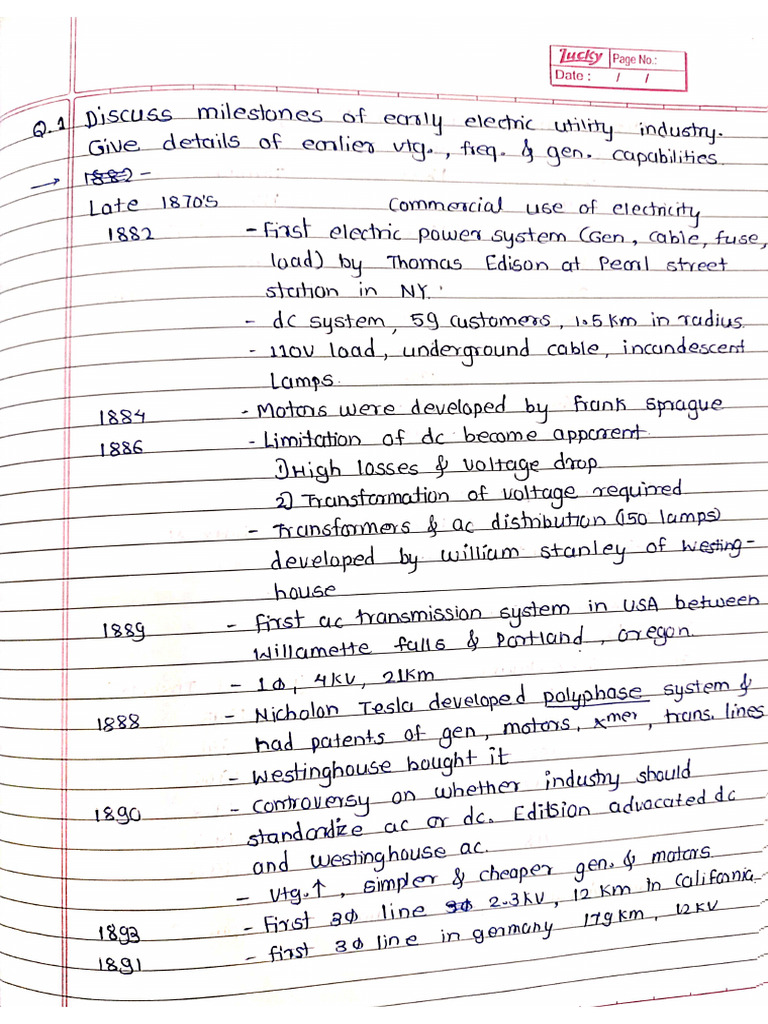 Lucky Page No.:
Date : / /
Q.1 Discuss milestones of early electric utility industry.
Give details of earlier vtg., freq. & gen. capabilities
→ 1882 -
Late 1870's Commercial use of electricity
1882 - First electric power system (Gen, cable, fuse,
load) by Thomas Edison at Pearl street
station in NY.
- dc system, 59 customers, 1.5 km in radius
- 110V load, underground cable, incandescent
Lamps.
1884 - Motors were developed by Frank Sprague
1886 - Limitation of dc become apparent
1) High losses & voltage drop
2) Transformation of voltage required
- Transformers & ac distribution (150 lamps)
developed by William Stanley of Westing-
house
1889 - First ac transmission system in USA between
Willamette falls & Portland, Oregon.
- 1ф, 4kV, 21km
1888 - Nicholon Tesla developed polyphase system &
had patents of gen, motors, xmer, trans. lines
- Westinghouse bought it
1890 - Controversy on whether industry should
standardize ac or dc. Edition advocated dc
and Westinghouse ac.
- Vtg.↑, simpler & cheaper gen. & motors
1893 - First 3ф line 3ф 2.3kV, 12 km in California
1891 - First 3ф line in germany 179km, 12kV